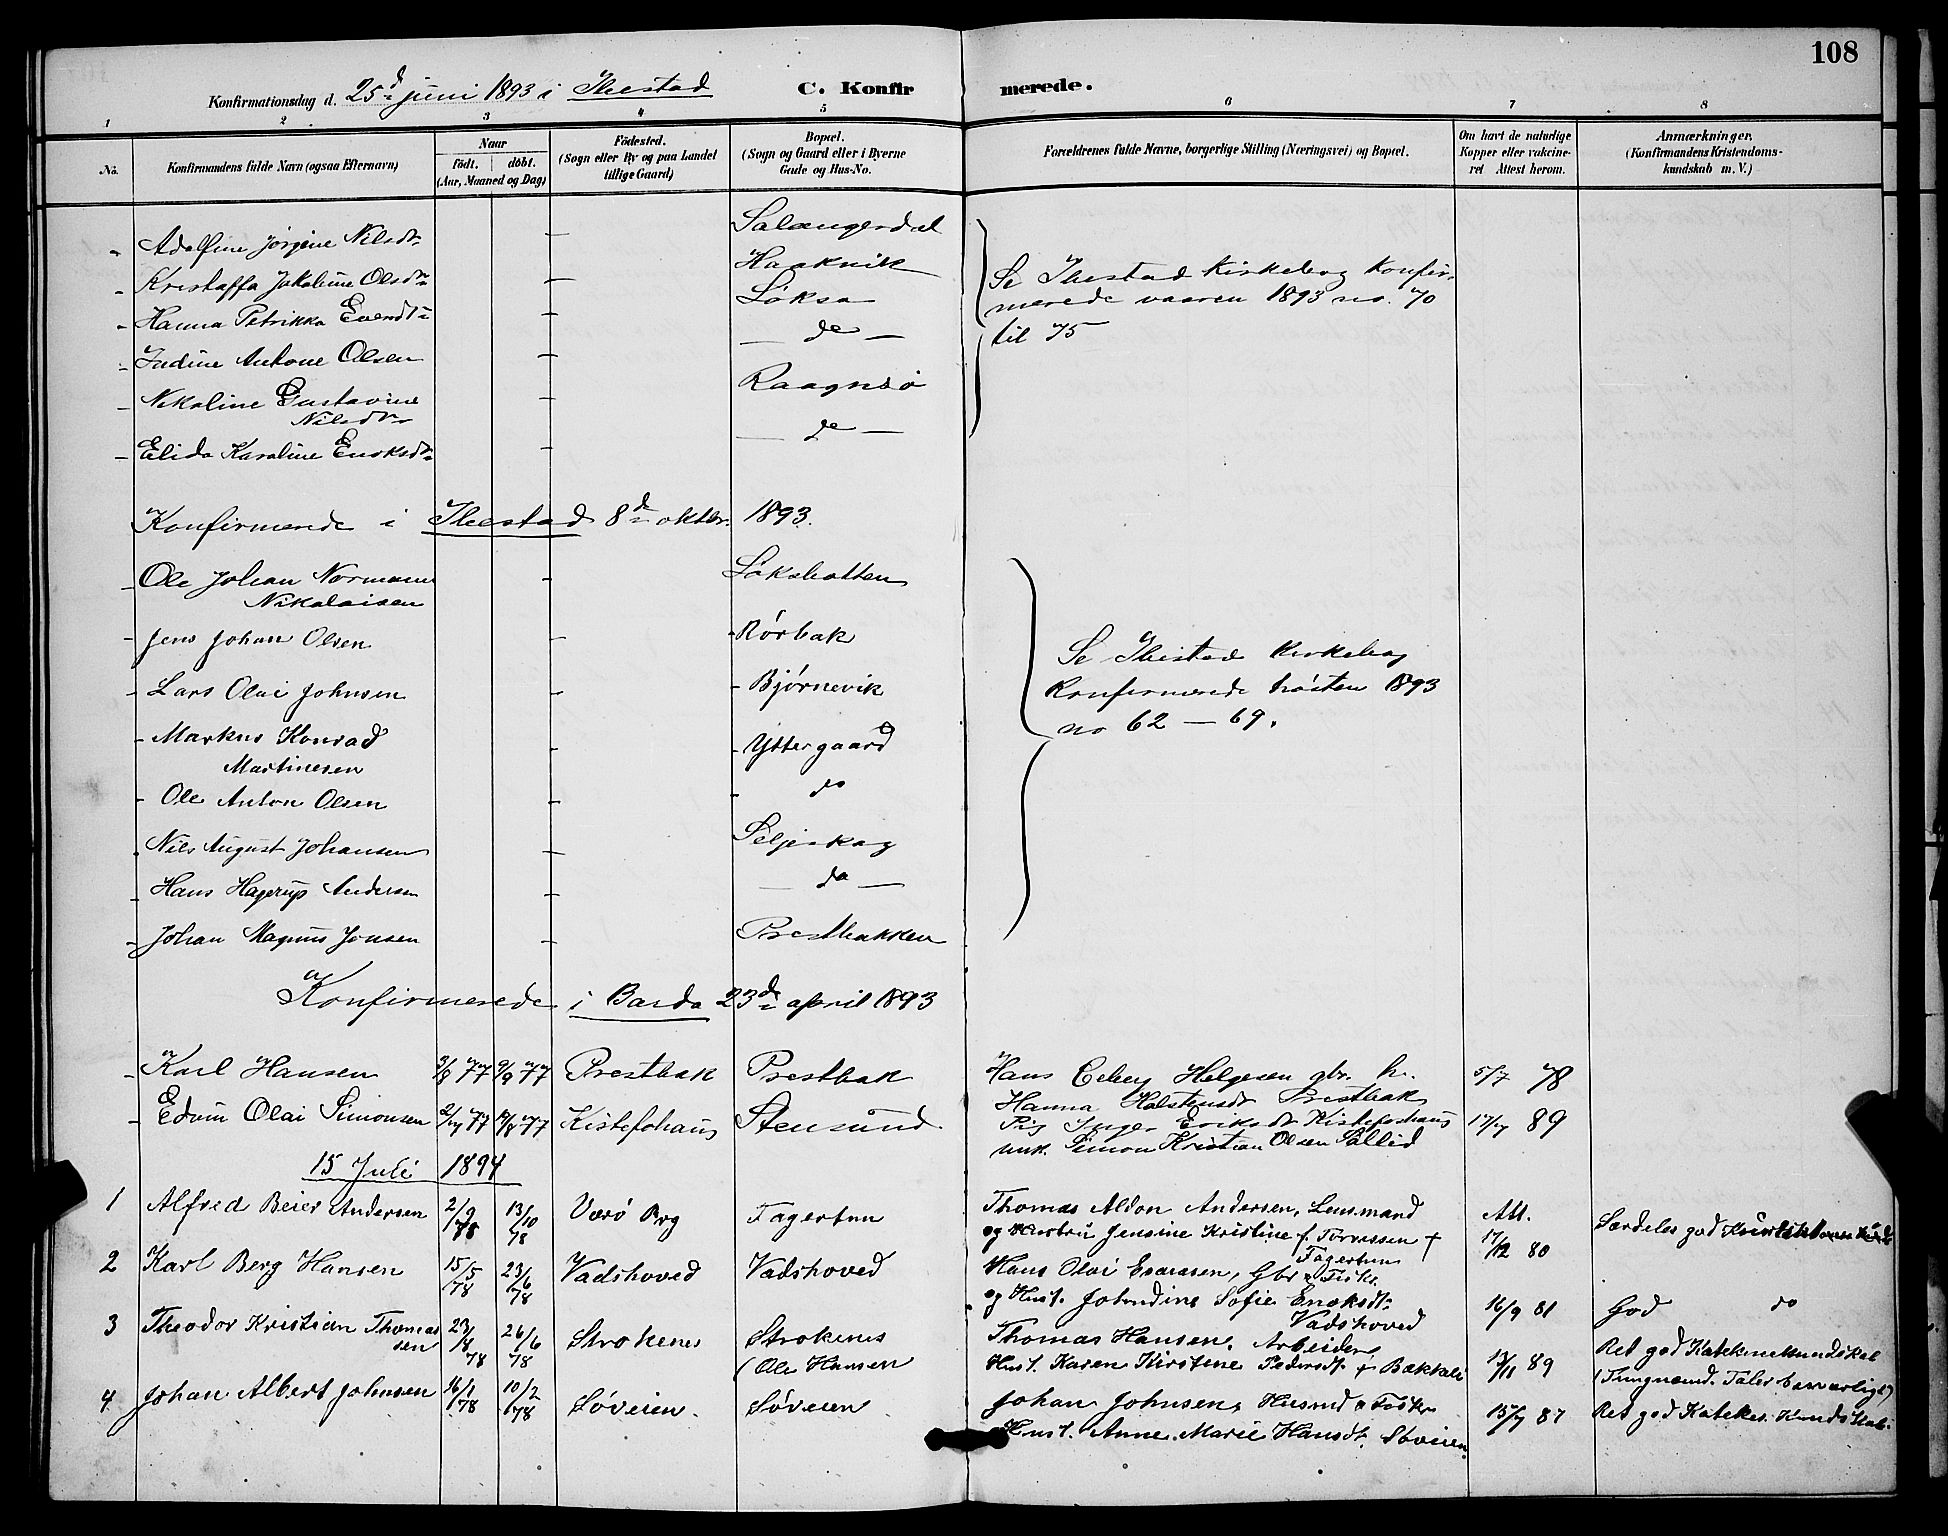 108
Konfirmationsdag d. 25d juni 1893 i Ibestad C. Konfirmerede.
1 2 3 4 5 6 7 8
No. Konfirmandens fulde Navn (ogsaa Efternavn) Naar født. døbt. (Aar, Maaned og Dag) Fødested. (Sogn eller By og paa Landet tillige Gaard) Bopæl. (Sogn og Gaard eller i Byerne Gade og Hus-No. Forældrenes fulde Navne, borgerlige Stilling (Næringsvei) og Bopæl. Om havt de naturlige Kopper eller vakcineret Attest herom. Anmærkninger. (Konfirmandens Kristendomskundskab m. V.)
- Adolfine Jørgine Nilsdtr — Salangerdal
- Kristaffa Jakobine Olsdtr — Haaknik
- Hanna Petrikka Evendtr — Løksa
- Indine Antone Olsen — — do —
- Nikoline Gustavine Nilsdtr — Raagnsø
- Elida Karoline Enoksdtr — — do —
Se Ibestad Kirkebog Konfir-
merede vaaren 1893 no. 70
til 75
Konfirmerede i Ibestad 8de oktbr. 1893.
- Ole Johan Normann Nikolaisen — Løksbotten
- Jens Johan Olsen — Rørbak
- Lars Olai Johnsen — Bjørnevik
- Markus Konrad Martinesen — Yttergaard
- Ole Anton Olsen — do
- Nils August Johansen — Seljeskog
- Hans Hagerup Andersen — — do —
- Johan Magnus Jonsen — Prestbakken
Se Ibestad Kirkebog
Konfirmerede høsten 1893
no 62 — 69.
Konfirmerede i Bardo 23de april 1893
- Karl Hansen 3/8 77 9/9 77 Prestbak Prestbak Hans Eeberg Helgesen gbr. h. Hanna Holstensdtr Prestbak 5/7 78
- Edvin Olai Simonsen 2/7 77 19/8 77 Kistefohaus Stensund Pig Inger Eriksdtr Kistefoshaug unk. Simon Kristian Olsen Sollid 17/7 89
15 Juli 1894
1 Alfred Beier Andersen 2/9 78 13/10 78 Værø Prg Fagertun Thomas Aldon Andersen, Lensmand og Hustru Jensine Kristine f. Torrissen + Fagertun Att. 17/12 80 Særdeles god
2 Karl Berg Hansen 15/5 78 23/6 78 Vadshoved Vadshoved Hans Olai Esaiasen, Gbr & Fisker og Hust. Johndine Sofie Enoksdtr Vadshoved 16/9 81 God do
3 Theodor Kristian Thomassen 23/4 78 26/6 78 Strokenes Strokenes (Ole Hansen Thomas Hansen. Arbeider Hust. Karen Kirstine Pedersdt. + Bakkeli 13/11 89 Ret god (Tungnemd. Taler besværligt)
4 Johan Albert Johnsen 16/1 78 10/2 78 Søveien. Søveien Johan Johnsen, Husmd & Fisker Hust. Anne Marie Hansdt. Søveien 15/7 87 Ret god Katekes. Kundskab.